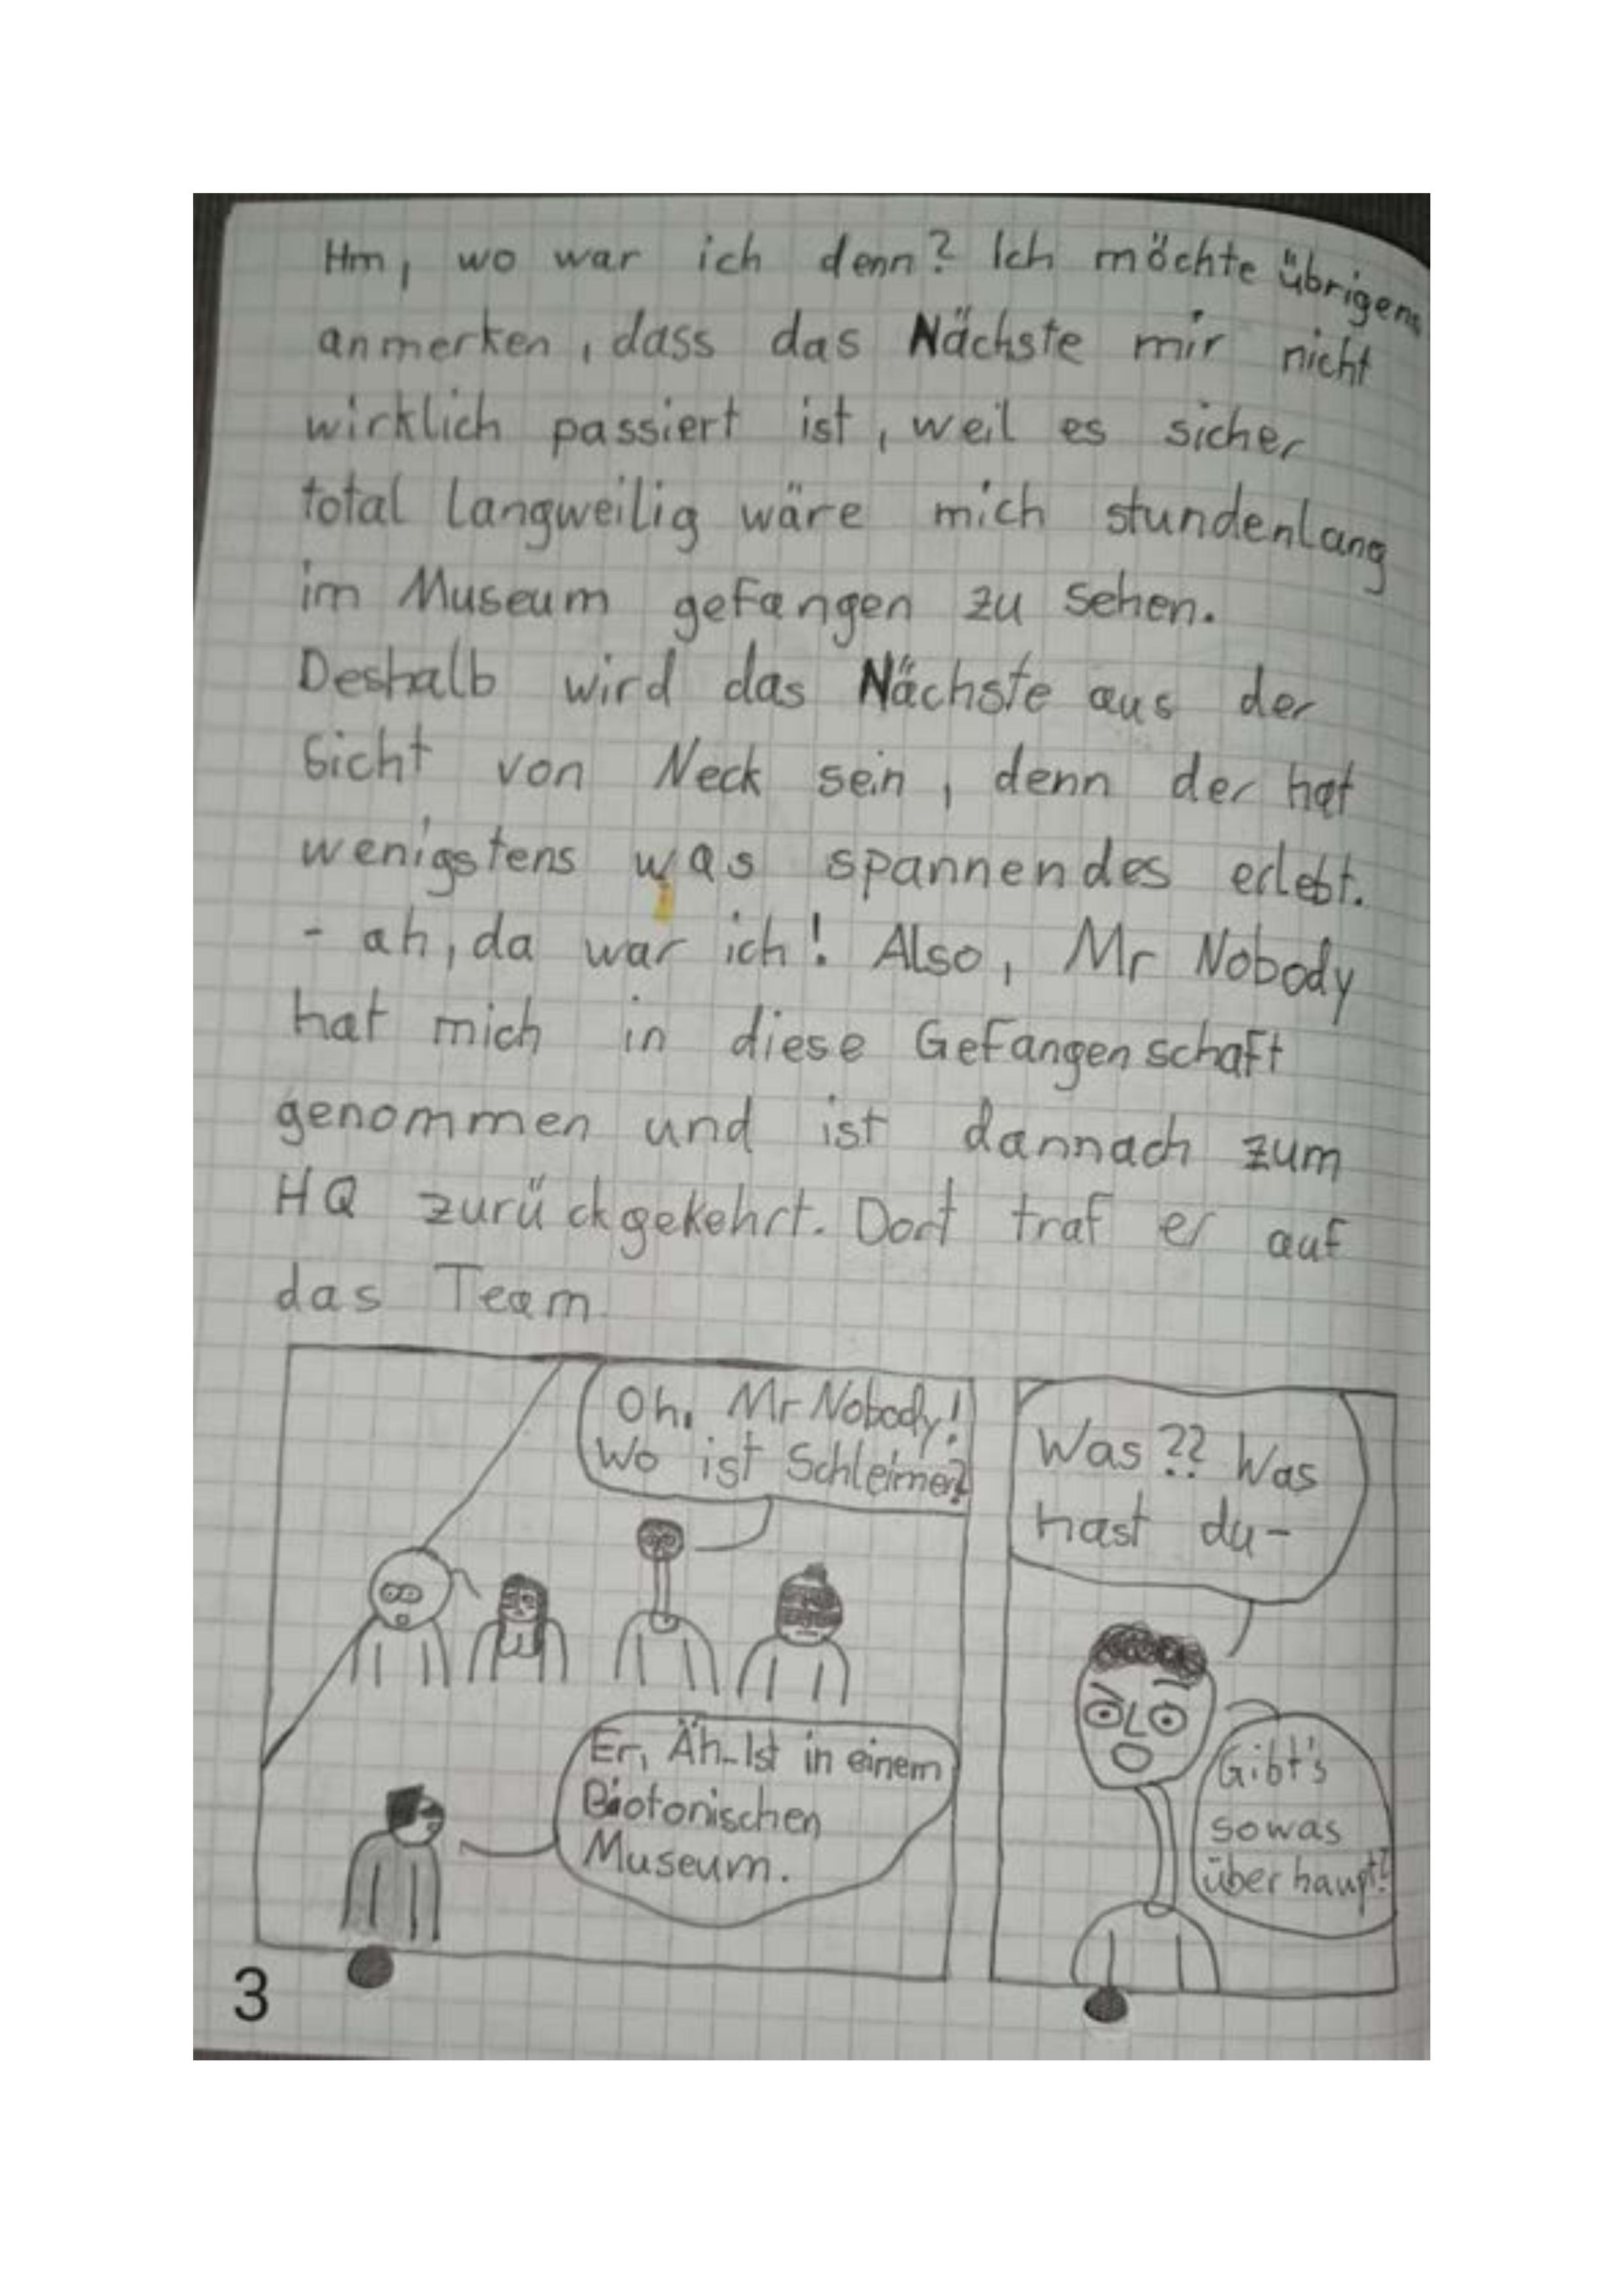 Hm, wo war ich denn? Ich möchte übrigens
anmerken, dass das Nächste mir nicht
wirklich passiert ist, weil es sicher
total langweilig wäre mich stundenlang
im Museum gefangen zu sehen.
Deshalb wird das Nächste aus der
Sicht von Neck sein, denn der hat
wenigstens was spannendes erlebt.
- ah, da war ich! Also, Mr Nobody
hat mich in diese Gefangenschaft
genommen und ist dannach zum
HQ zurückgekehrt. Dort traf er auf
das Team.
Oh, Mr Nobody!
Wo ist Schleimer?
Er, Äh-Ist in einem
Biotonischen
Museum.
Was?? Was
hast du-
Gibt's
sowas
überhaupt?
3